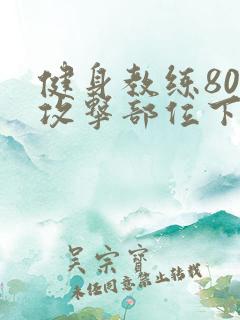 健身教练80
攻擊部位下
吴宗寶
未任同意禁止转载